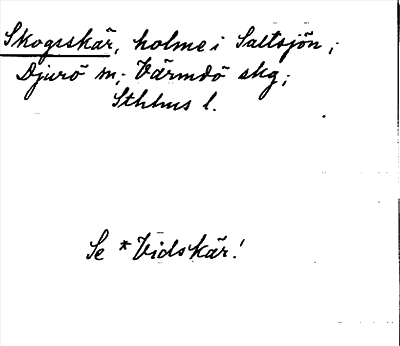 Skogsskär, holme i Saltsjön;
Djurö sn; Värmdö skg;
Sthlms l.
Se *Vidskär!